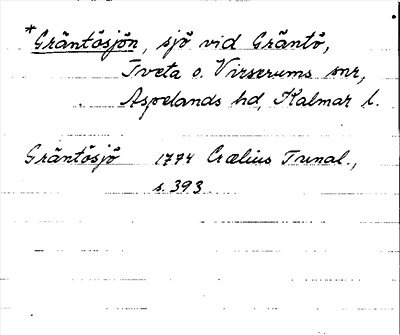 *Gräntösjön, sjö vid Gräntö,
Tveta o. Virserums snr,
Aspelands hd, Kalmar l.
Gräntösjö 1774 Crælius Tunal.,
s. 393.